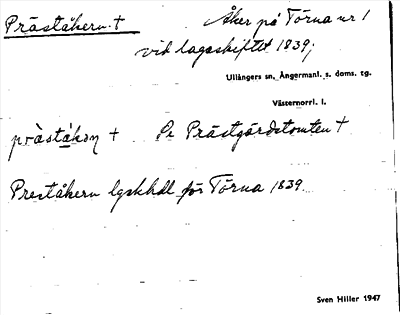 Präståkern. † Åker på Törna nr 1
vid lagaskiftet 1839;
Ullångers sn, Ångermanl. s. doms. tg.
Västernorrl. l.
præ̀stákɘɳ † Se Prästgårdstomten †
Preståkern lgskhdl för Törna 1839.
Sven Hiller 1947